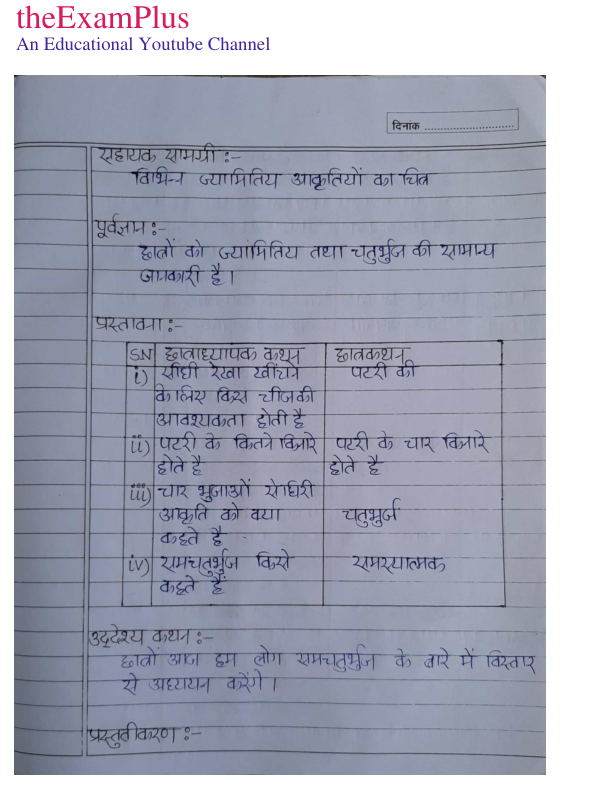 theExamPlus
An Educational Youtube Channel
दिनांक
सहायक सामग्री :-
विभिन्न ज्यामितिय आकृतियों का चित्र
पूर्वज्ञान :-
छात्रों को ज्यामितिय तथा चतुर्भुज की सामान्य
जानकारी है।
प्रस्तावना :-
SN छात्राध्यापक कथन छात्रकथन
i) सीधी रेखा खींचने पटरी की
के लिए किस चीज की
आवश्यकता होती है
ii) पटरी के कितने किनारे पटरी के चार किनारे
होते है होते है
iii) चार भुजाओं से घिरी
आकृति को क्या चतुर्भुज
कहते है
iv) समचतुर्भुज किसे समस्यात्मक
कहते हैं
उद्देश्य कथन :-
छात्रों आज हम लोग समचतुर्भुज के बारे में विस्तार
से अध्ययन करेंगे।
प्रस्तुतीकरण :-